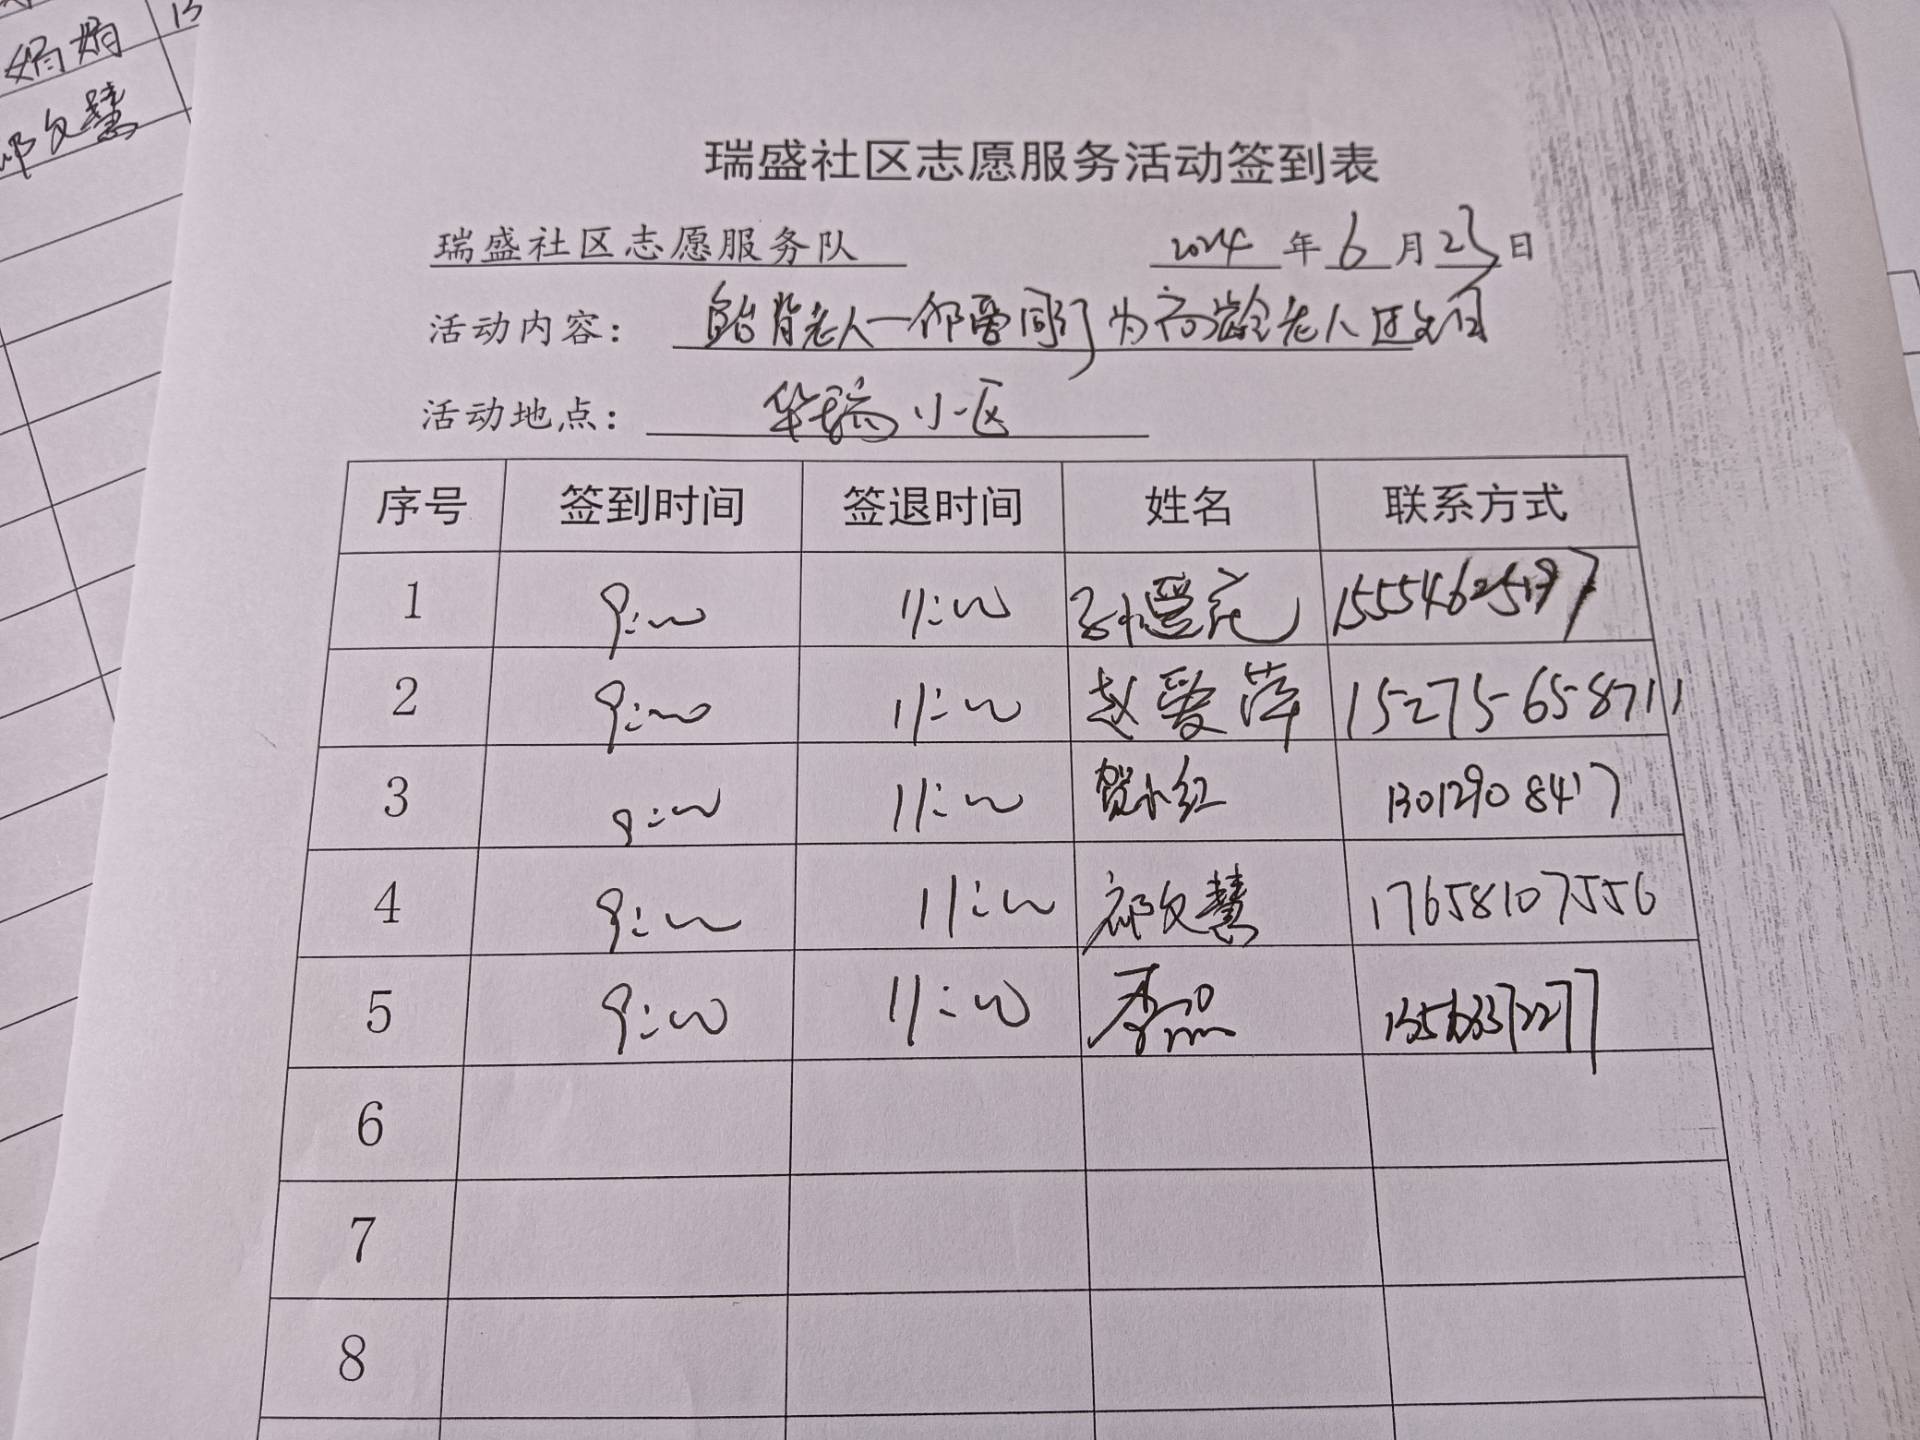 娟娟
祁文慧
瑞盛社区志愿服务活动签到表
瑞盛社区志愿服务队 2024 年 6 月 23 日
活动内容: 为高龄老人过生日
活动地点: 华瑞小区
序号 签到时间 签退时间 姓名 联系方式
1 9:00 11:00
2 9:00 11:00 赵爱萍 15275658711
3 9:00 11:00 贺小红 13012908417
4 9:00 11:00 祁文慧 17658107556
5 9:00 11:00
6
7
8